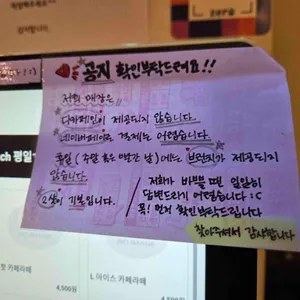 감사합니다
공지 확인부탁드려요!!
저희 매장은!!
디카페인이 제공되지 않습니다.
네이버페이로 결제는 어렵습니다.
휴일 (주말 혹은 빨간 날)에는 브런치가 제공되지
않습니다.
2샷이 기본입니다.
저희가 바쁠 때 일일히
답변드리기 어렵습니다 :(
꼭! 먼저 확인부탁드립니다
찾아주셔서 감사합니다
ch 평일
카페라떼
4,500원
L 아이스 카페라떼
4,500